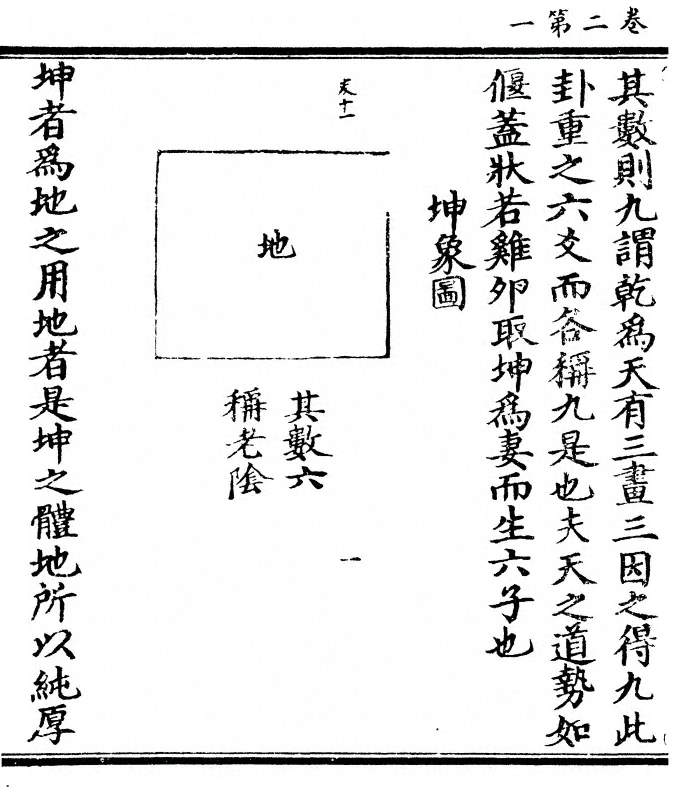 卷二第一
其數則九謂乾爲天有三畫三因之得九此
卦重之六爻而各稱九是也夫天之道勢如
偃蓋狀若雞卵取坤爲妻而生六子也
坤象圖
地
其數六
稱老陰
一
坤者爲地之用地者是坤之體地所以純厚